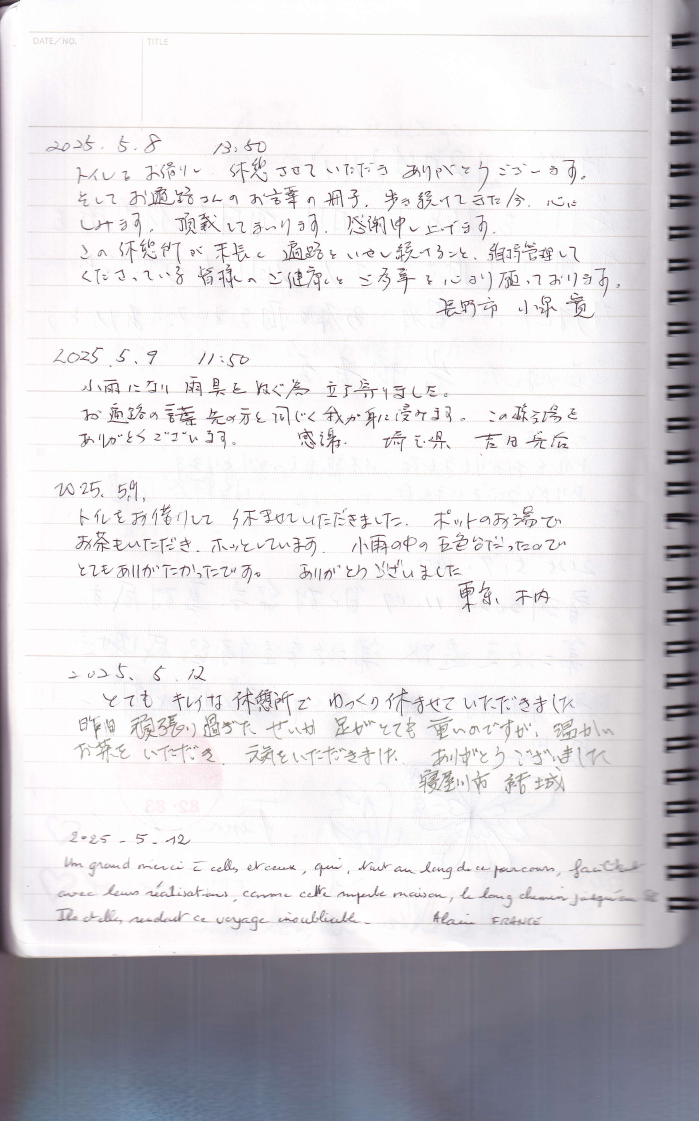 DATE/NO.
TITLE
2025. 5. 8 13:50
トイレをお借りし 休憩させていただき ありがとうございます。
そしてお遍路さんのお言葉の冊子、歩き続けてきた今、心に
しみます。頂戴してまいります。感謝申し上げます。
この休憩所が末長く遍路をいやし続けること、維持管理して
くださっている皆様のご健康とご多幸を心より願っております。
長野市 小 寛
2025. 5. 9 11:50
小雨になり雨具をぬぐ為 立ち寄りました。
お遍路の言葉 先の方と同じく我が身に浸みます。この様な場を
ありがとうございます。 感謝. 埼玉県
2025. 5.9.
トイレをお借りして 休ませていただきました. ポットのお湯で
お茶もいただき. ホッとしています. 小雨の中の五色台だったので
とてもありがたかったです。 ありがとうございました
東京 木内
2025. 5. 12
とても キレイな 休憩所で ゆっくり休ませていただきました
昨日 頑張り過ぎた せいか 足がとても 重いのですが、温かい
お茶を いただき. 元気をいただきました. ありがとうございました
寝屋川市 結城
2025 - 5. 12
Un grand merci à celles et ceux, qui, tout au long de ce parcours, facilitent
avec leurs réalisations, comme cette superbe maison, le long chemin jusqu'au 88
Ils et elles rendent ce voyage inoubliable. Alain FRANCE